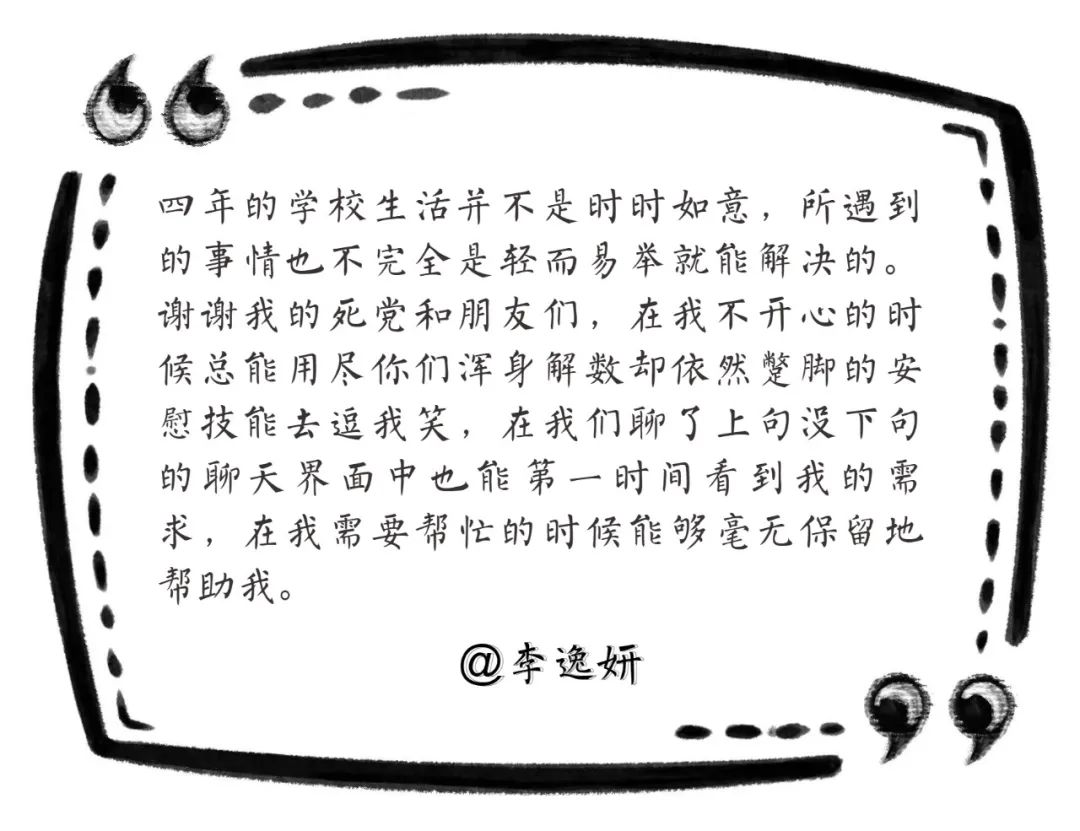 四年的学校生活并不是时时如意，所遇到
的事情也不完全是轻而易举就能解决的。
谢谢我的死党和朋友们，在我不开心的时
候总能用尽你们浑身解数却依然蹩脚的安
慰技能去逗我笑，在我们聊了上句没下句
的聊天界面中也能第一时间看到我的需
求，在我需要帮忙的时候能够毫无保留地
帮助我。
@李逸妍